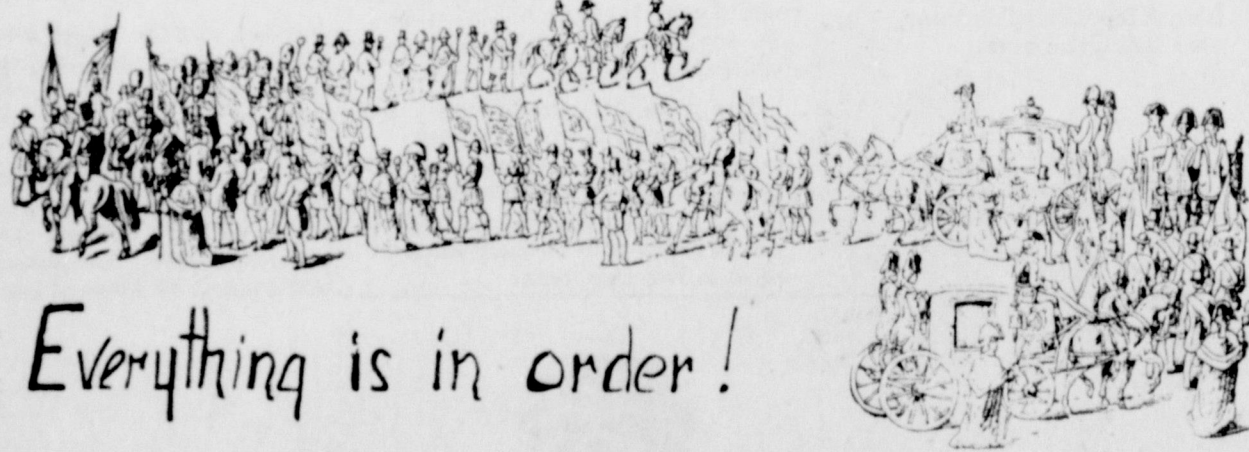 Everything is in order!